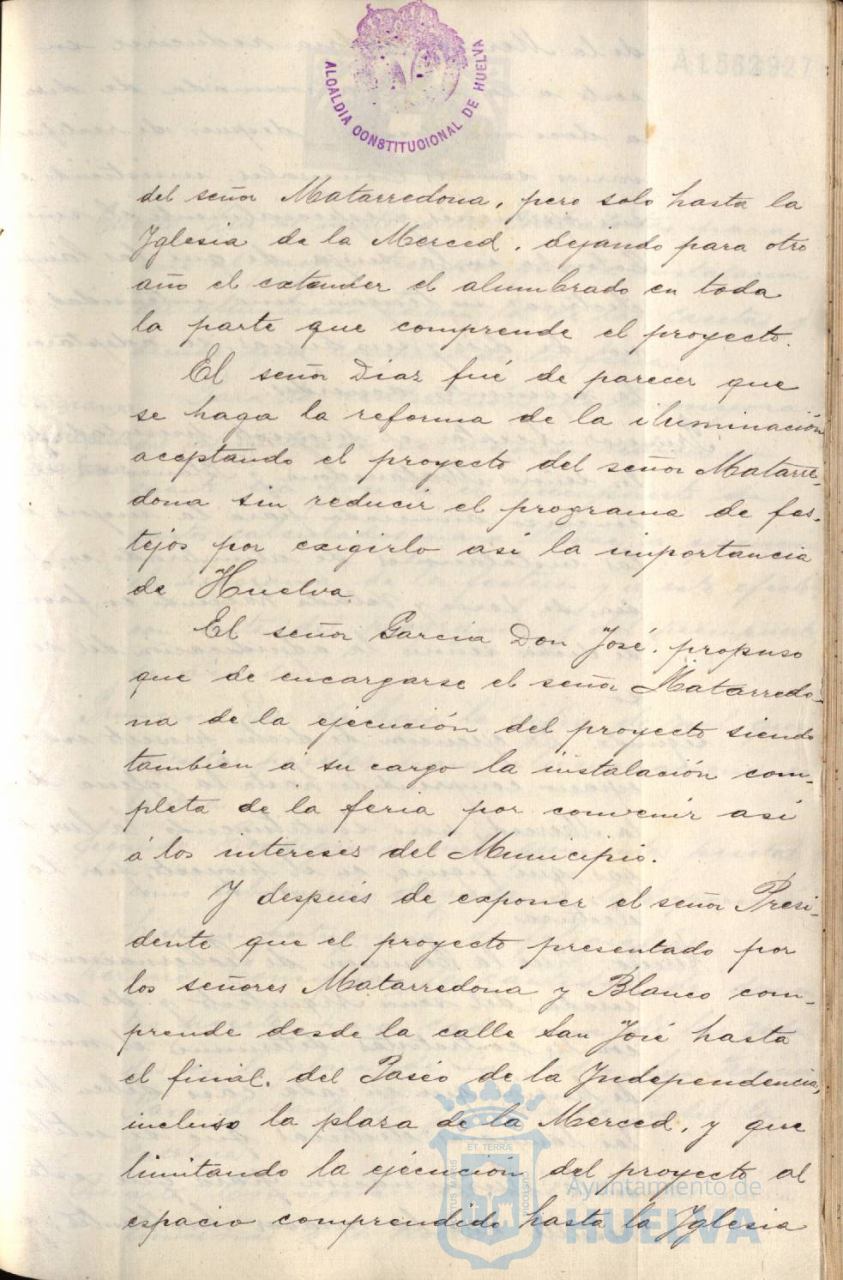 ALCALDIA CONSTITUCIONAL DE HUELVA
A1562927
del señor Matarredona, pero solo hasta la
Yglesia de la Merced, dejando para otro
año el extender el alumbrado en toda
la parte que comprende el proyecto.
El señor Diaz fué de parecer que
se haga la reforma de la iluminación
aceptando el proyecto del señor Matarre-
dona sin reducir el programa de fes-
tejos por exigirlo asi la importancia
de Huelva.
El señor Garcia Don José, propuso
que de encargarse el señor Matarredo-
na de la ejecución del proyecto siendo
tambien á su cargo la instalación com-
pleta de la feria por convenir asi
á los intereses del Municipio.
Y después de exponer el señor Presi-
dente que el proyecto presentado por
los señores Matarredona y Blanco com-
prende desde la calle San José hasta
el final, del Paseo de la Yndependencia,
incluso la plaza de la Merced, y que
limitando la ejecución del proyecto al
espacio comprendido hasta la Yglesia
ET TERRA
Ayuntamiento de
HUELVA